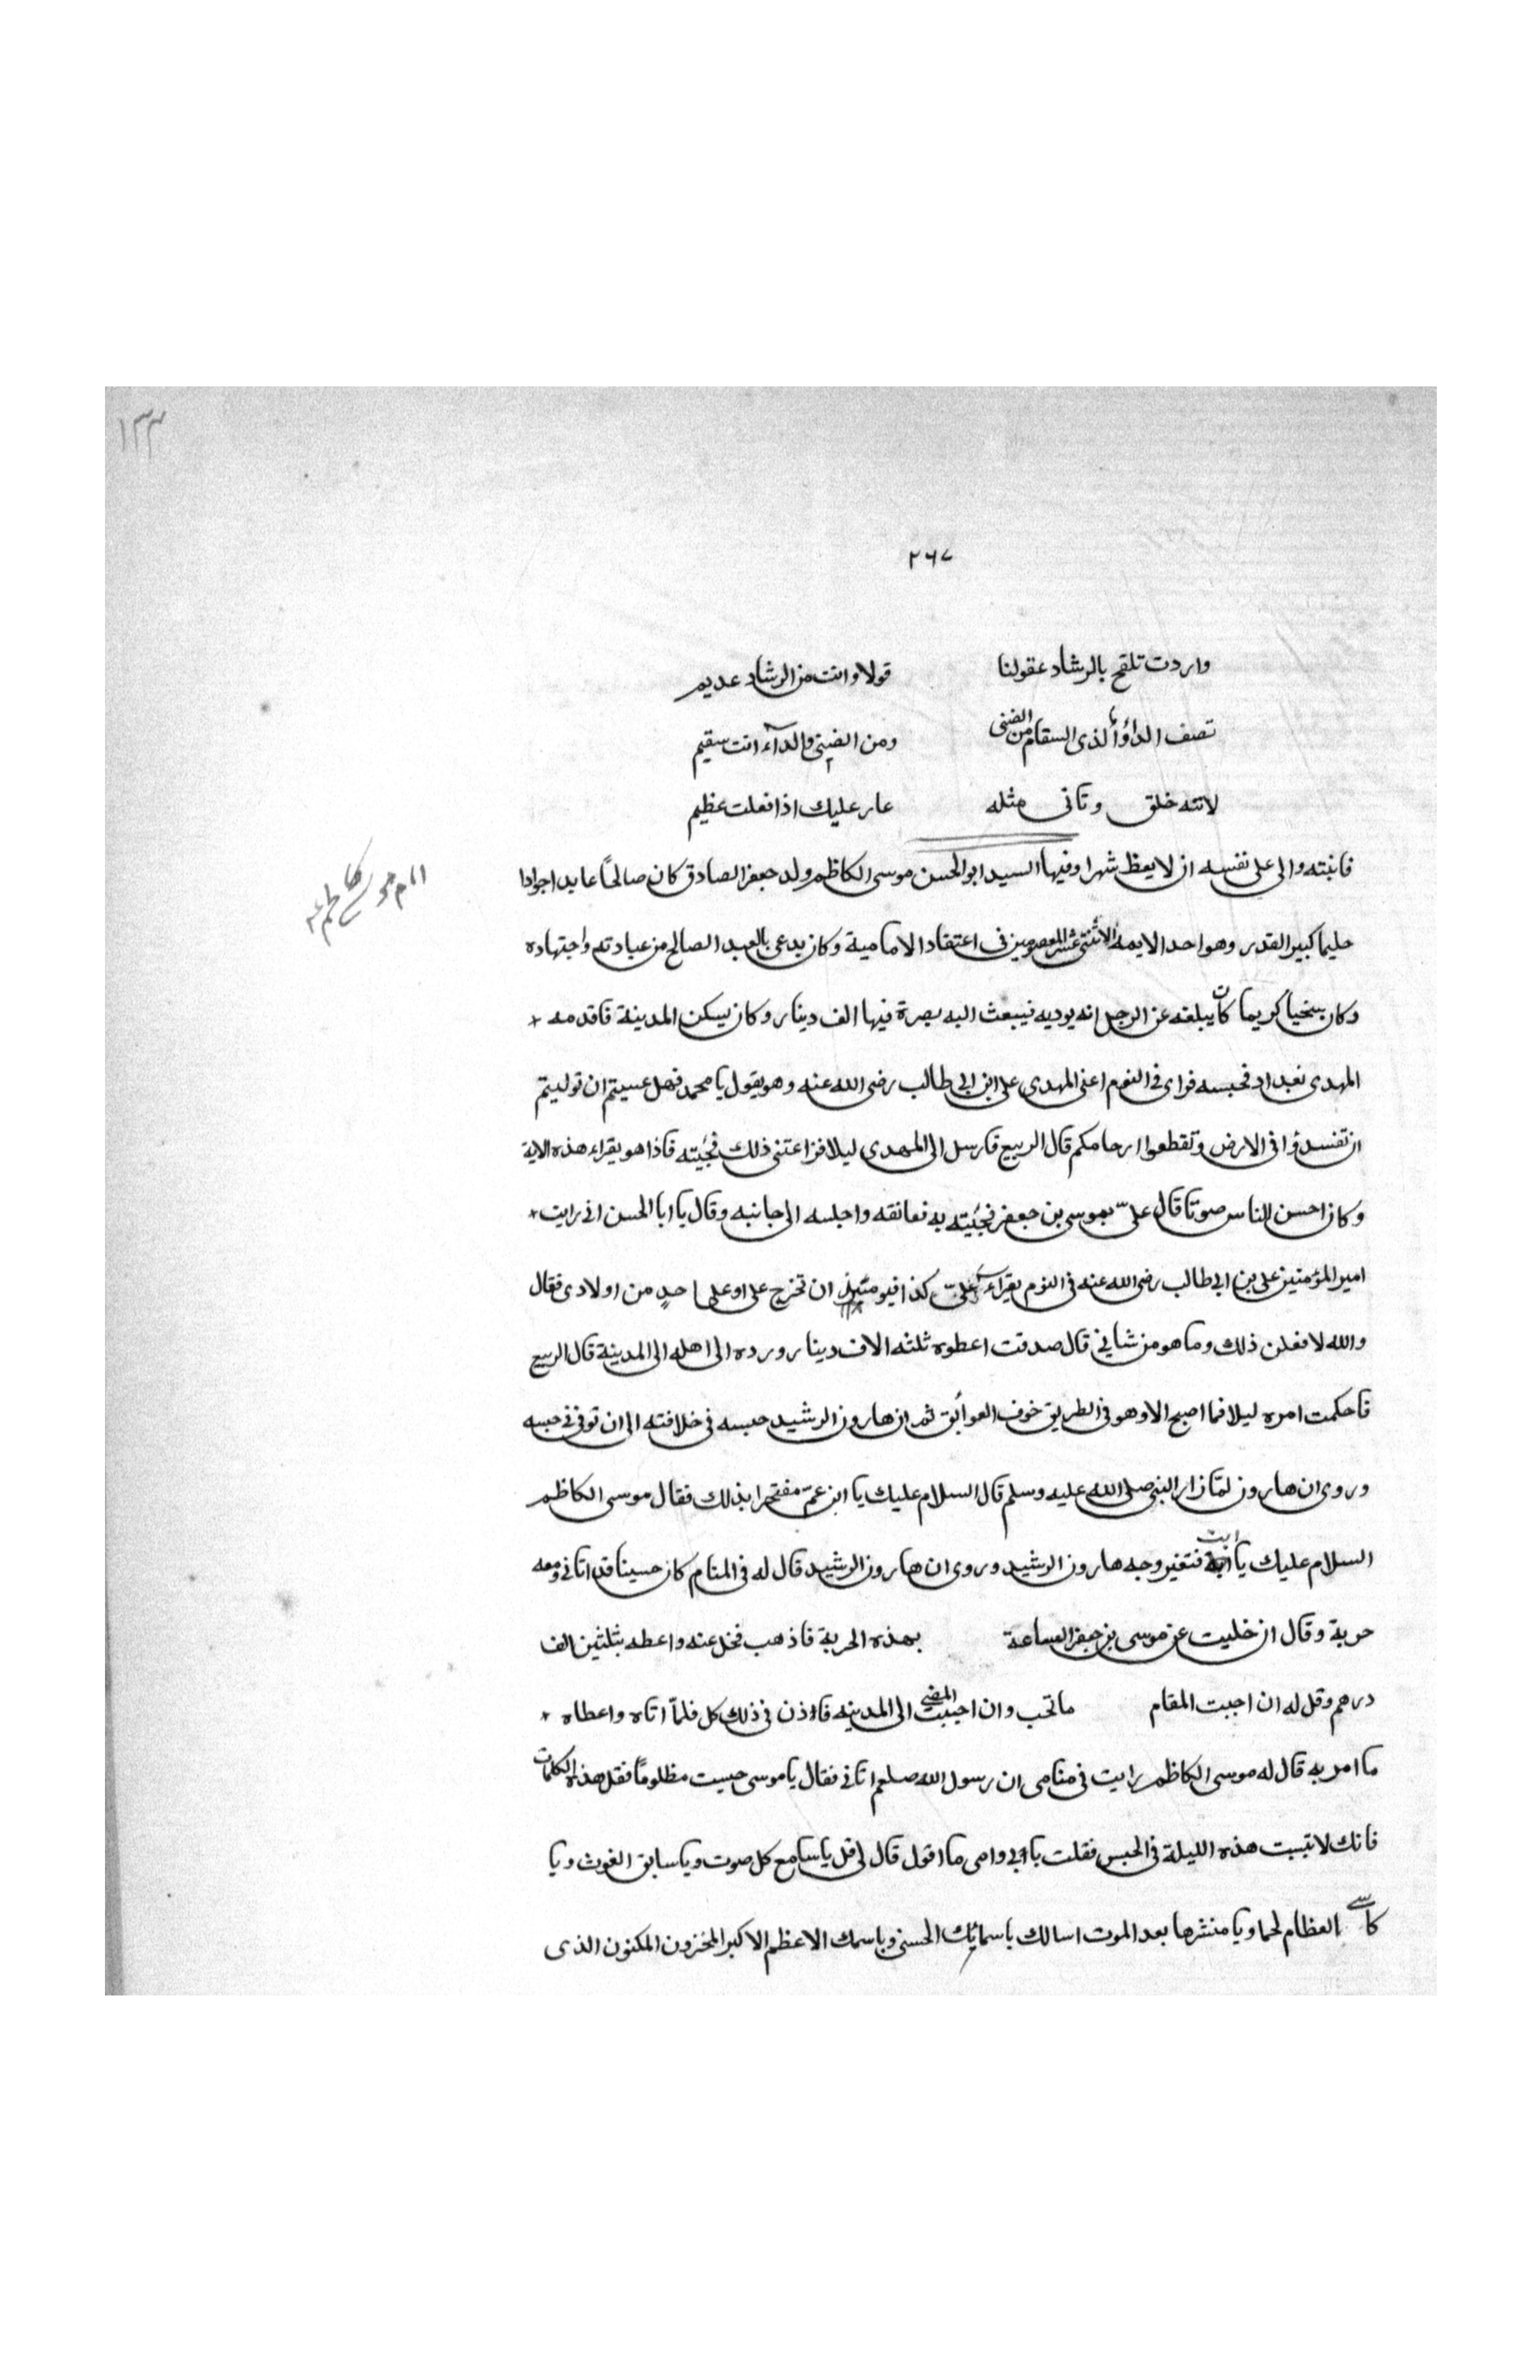 ١٣٣
٢٦٧
واردت تلقح بالرشاد عقولنا قولا وانت من الرشاد عديم
تصف الدواء لذى السقام من الضنى ومن الضنى والداء انت سقيم
لاتنه خلق وتاتى مثله عار عليك اذا فعلت عظيم
فانبته والى على نفسه ان لا يعظ شهرا وفيها السيد ابو الحسن موسى الكاظم ولد جعفر الصادق كان صالحاً عابدا جوادا
امام موسى كاظم ع
حليما كبير القدر وهو احد الايمة الاثنى عشر المعصومين فى اعتقاد الامامية وكان يدعى بالعبد الصالح من عبادته واجتهاده
وكان سخياً كريما كان يبلغه عن الرجل انه يوديه فيبعث اليه بصرة فيها الف دينار وكان يسكن المدينة فاقدمه
المهدى بغداد فحبسه فراى فى النوم اعنى المهدى على ابن ابى طالب رضى الله عنه وهو يقول يا محمد فهل عسيتم ان توليتم
ان تفسدوا فى الارض وتقطعوا ارحامكم قال الربيع فارسل الى المهدى ليلا فزاعتنى ذلك فجئته فاذا هو يقراء هذه الاية
وكان احسن الناس صوتا قال علىّ بموسى بن جعفر فجئته به فعانقه واجلسه الى جانبه وقال يا ابا الحسن انى رايت
امير المؤمنين على بن ابى طالب رضى الله عنه فى النوم يقراء علىّ كذا فيومننى ان تخرج على او على احدٍ من اولادى فقال
والله لا فعلن ذلك وما هو من شانى قال صدقت اعطوه ثلثه الاف دينار ورده الى اهله الى المدينة قال الربيع
فاحكمت امره ليلا فما اصبح الا وهو فى الطريق خوف العوائق ثم ان هارون الرشيد حبسه فى خلافته الى ان توفى فى حبسه
وروى ان هارون لما زار النبى صلى الله عليه وسلم قال السلام عليك يا ابن عمّ مفتخرا بذلك فقال موسى الكاظم
السلام عليك يا ابت فتغير وجه هارون الرشيد وروى ان هارون الرشيد قال له فى المنام كان حسينا قد اتانى ومعه
حربة وقال ان خليت عن موسى بن جعفر الساعة بهذه الحربة فاذهب فخل عنه واعطه بثلثين الف
درهم وقل له ان احببت المقام ماتحب وان احببت المضى الى المدينه فاذن فى ذلك كل فلمّا اتاه واعطاه
ما امر به قال له موسى الكاظم رايت فى منامى ان رسول الله صلعم اتانى فقال يا موسى حبست مظلوماً فقل هذه الكلمات
فانك لا تبيت هذه الليلة فى الحبس فقلت بابى وامى ما اقول قال لى قل يا سامع كل صوت ويا سابق الغوث ويا
كاسى العظام لحما ويا منشرها بعد الموت اسالك باسمائك الحسنى وباسمك الاعظم الاكبر المخزون المكنون الذى